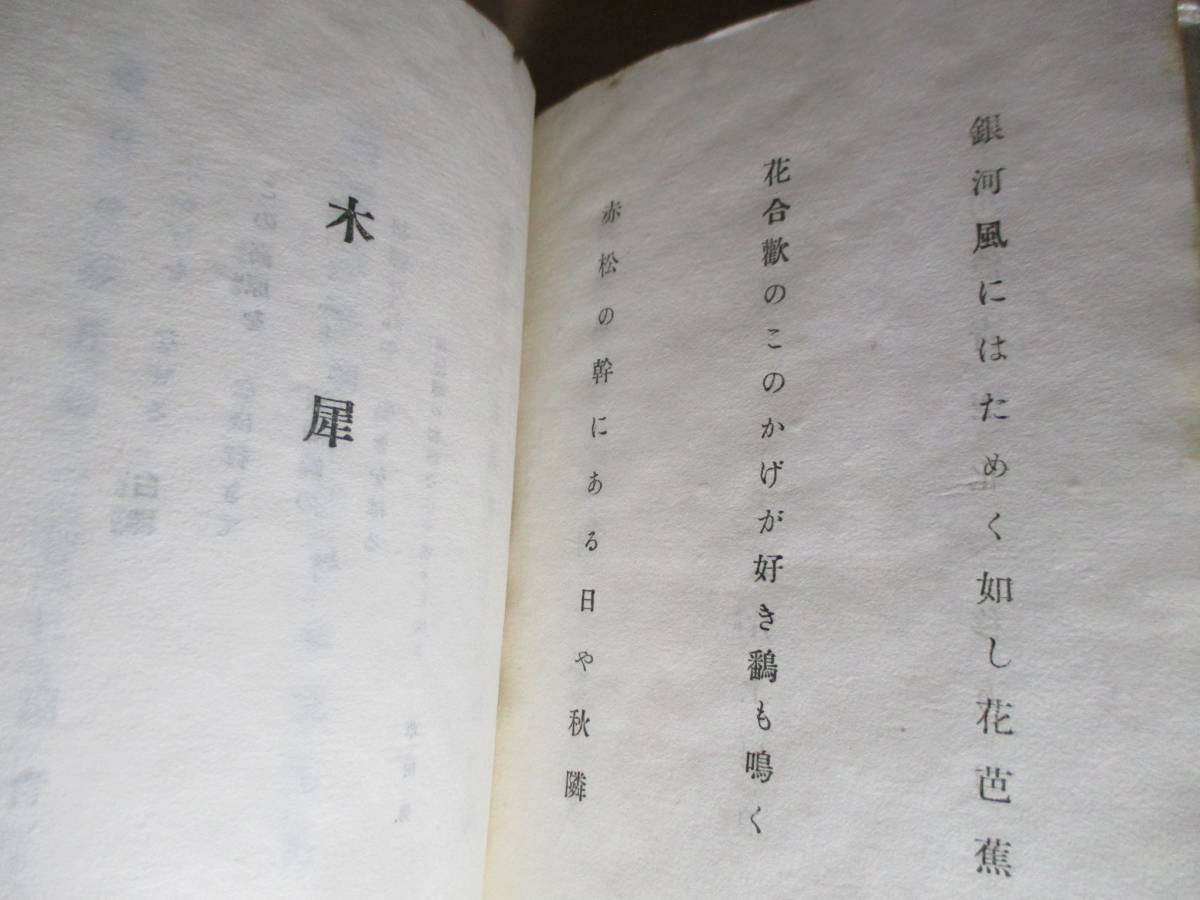 銀河風にはためく如し花芭蕉
花合歡のこのかげが好き鷭も鳴く
赤松の幹にある日や秋隣
木犀